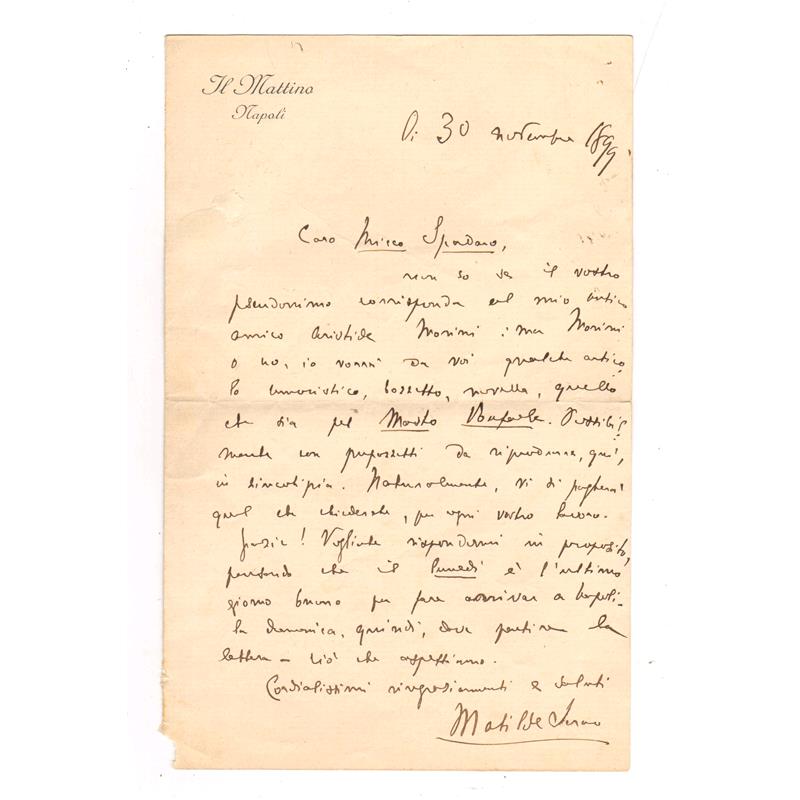 Il Mattino
Napoli
Di 30 novembre 1899
Caro Micco Spadaro,
non so se il vostro
pseudonimo corrisponda al mio antico
amico Aristide Morini: ma Morini
o no, io vorrei da voi qualche artico
lo umoristico, bozzetto, novella, quello
che sia pel Masto Rafaele. Possibil
mente con pupazzetti da riprodurre, qui,
in zincotipia. Naturalmente, vi si pagherà
quel che chiederete, per ogni vostro lavoro.
Grazie! Vogliate rispondermi in proposito,
pensando che il lunedì è l'ultimo
giorno buono per fare arrivar a Napoli
la domenica, quindi, deve partire la
lettera – ciò che aspettiamo.
Cordialissimi ringraziamenti e saluti
Matilde Serao